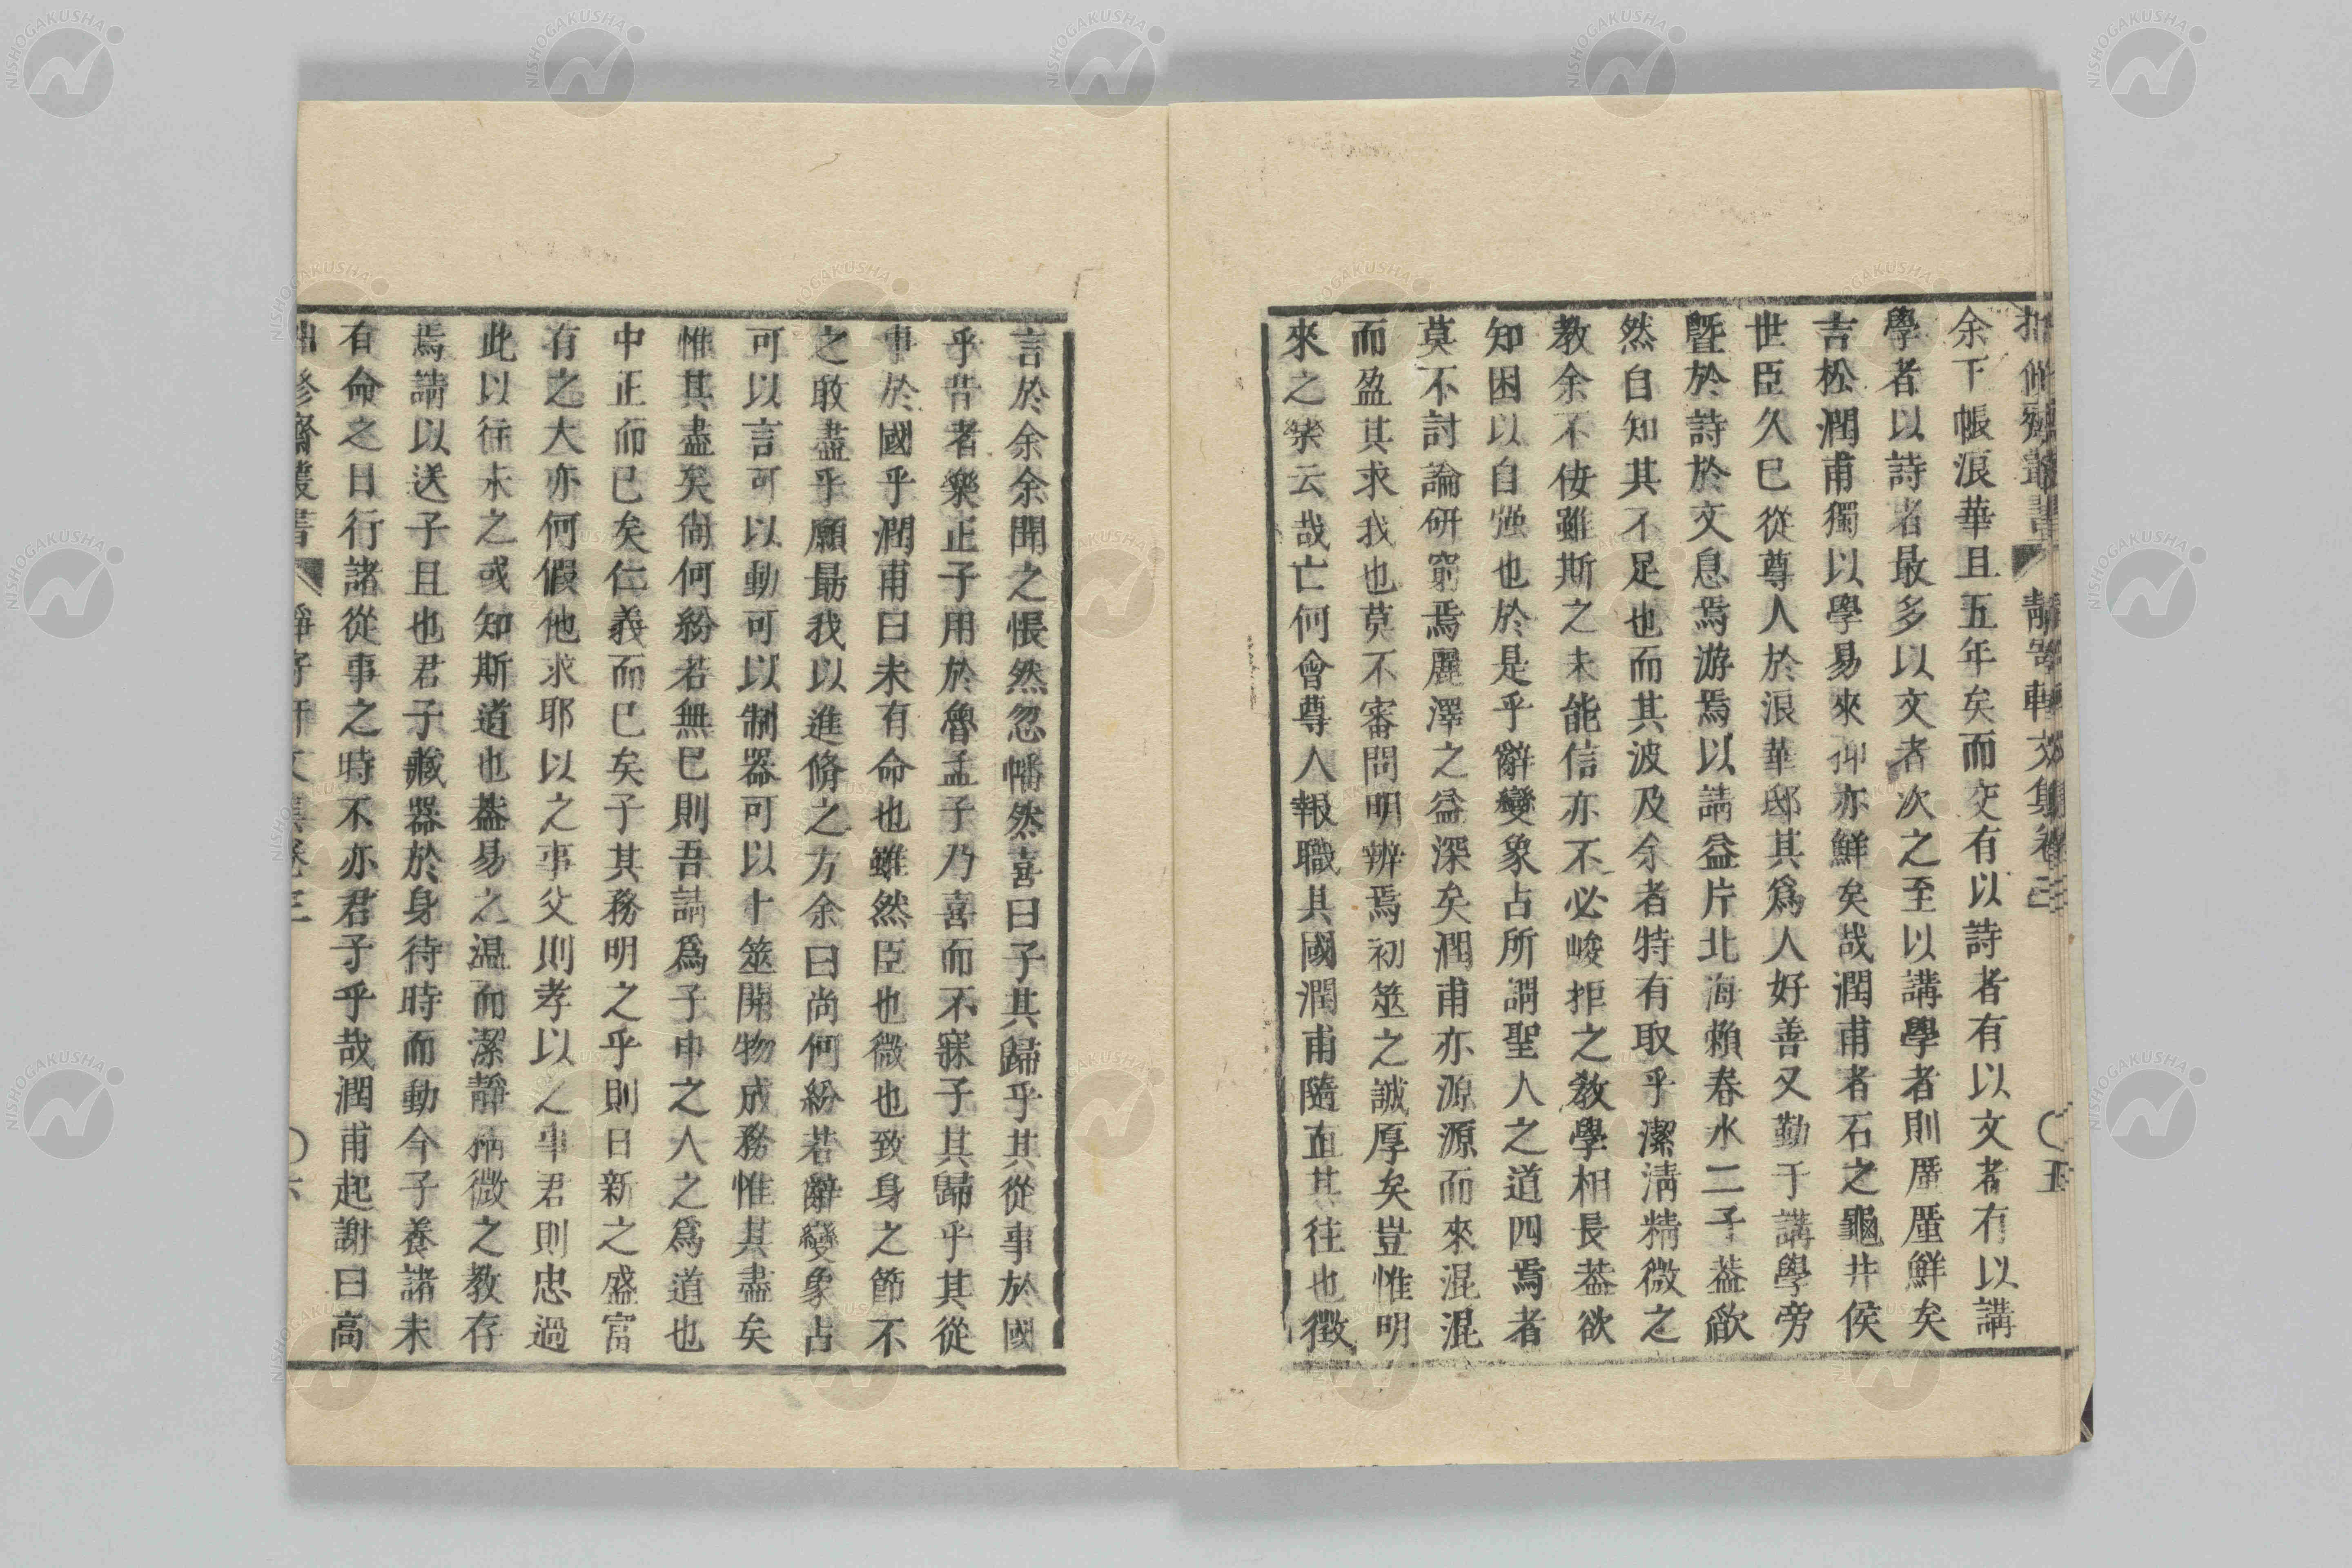 余下帳浪華且五年矣而交有以詩者有以文者有以講
學者以詩者最多以文者次之至以講學者則厪厪鮮矣
吉松潤甫獨以學易來抑亦鮮矣哉潤甫者石之龜井侯
世臣久已從尊人於浪華邸其爲人好善又勤于講學旁
曁於詩於文息焉游焉以請益片北海賴春水二子葢歉
然自知其不足也而其波及余者特有取乎潔淸精微之
教余不佞雖斯之未能信亦不必峻拒之教學相長葢欲
知困以自强也於是乎辭變象占所謂聖人之道四焉者
莫不討論硏窮焉麗澤之益深矣潤甫亦源源而來混混
而盈其求我也莫不審問明辨焉初筮之誠厚矣豈惟朋
來之樂云哉亡何會尊人報職其國潤甫隨而其往也徵
言於余余聞之悵然忽幡然喜曰子其歸乎其從事於國
乎昔者樂正子用於魯孟子乃喜而不寐子其歸乎其從
事於國乎潤甫曰未有命也雖然臣也微也致身之節不
之敢盡乎願勗我以進脩之方余曰尚何紛若辭變象占
可以言可以動可以制器可以卜筮開物成務惟其盡矣
惟其盡矣尙何紛若無已則吾請爲子申之人之爲道也
中正而已矣仁義而已矣子其務明之乎則日新之盛富
有之大亦何假他求耶以之事父則孝以之事君則忠過
此以徃未之或知斯道也葢易之温而潔靜精微之教存
焉請以送子且也君子藏器於身待時而動今子養諸未
有命之日行諸從事之時不亦君子乎哉潤甫起謝曰高